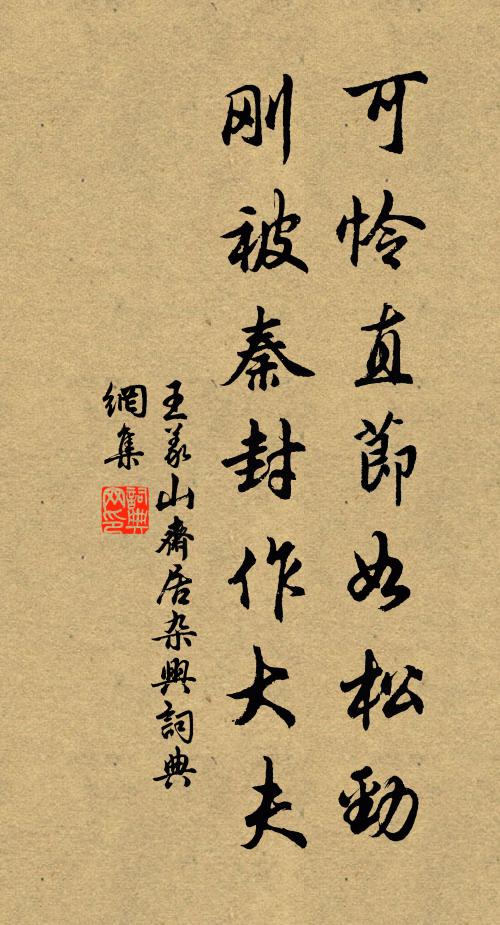 可憐直節如松勁
刚被秦封作大夫
王義山齋居杂興詞典
網集
詞典
网印